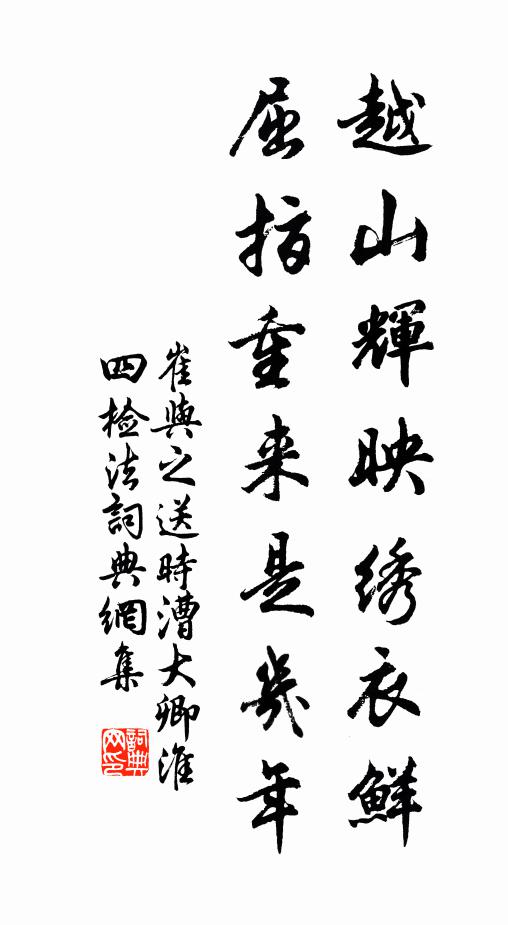 越山輝映绣衣鮮
屈指重来是幾年
崔與之送時漕大卿淮
四檢法詞典網集
詞典
网印